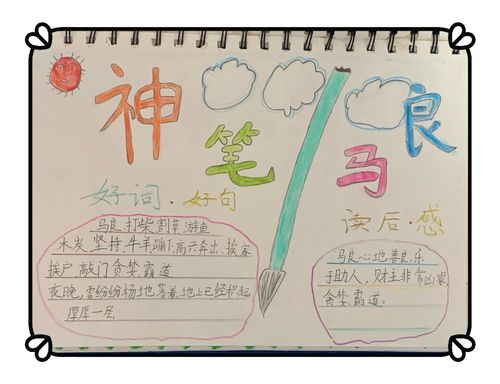 神笔马良
好词·好句
马良.打柴.割草.游鱼
木炭.坚持.牛羊蹦下.高兴奔出.挨家
挨户.敲门.贪婪.霸道
夜晚,雪纷纷杨地落着,地上已经积起
厚厚一层.
读后·感
马良心地善良,乐
于助人,财主非常凶狠
贪婪.霸道。